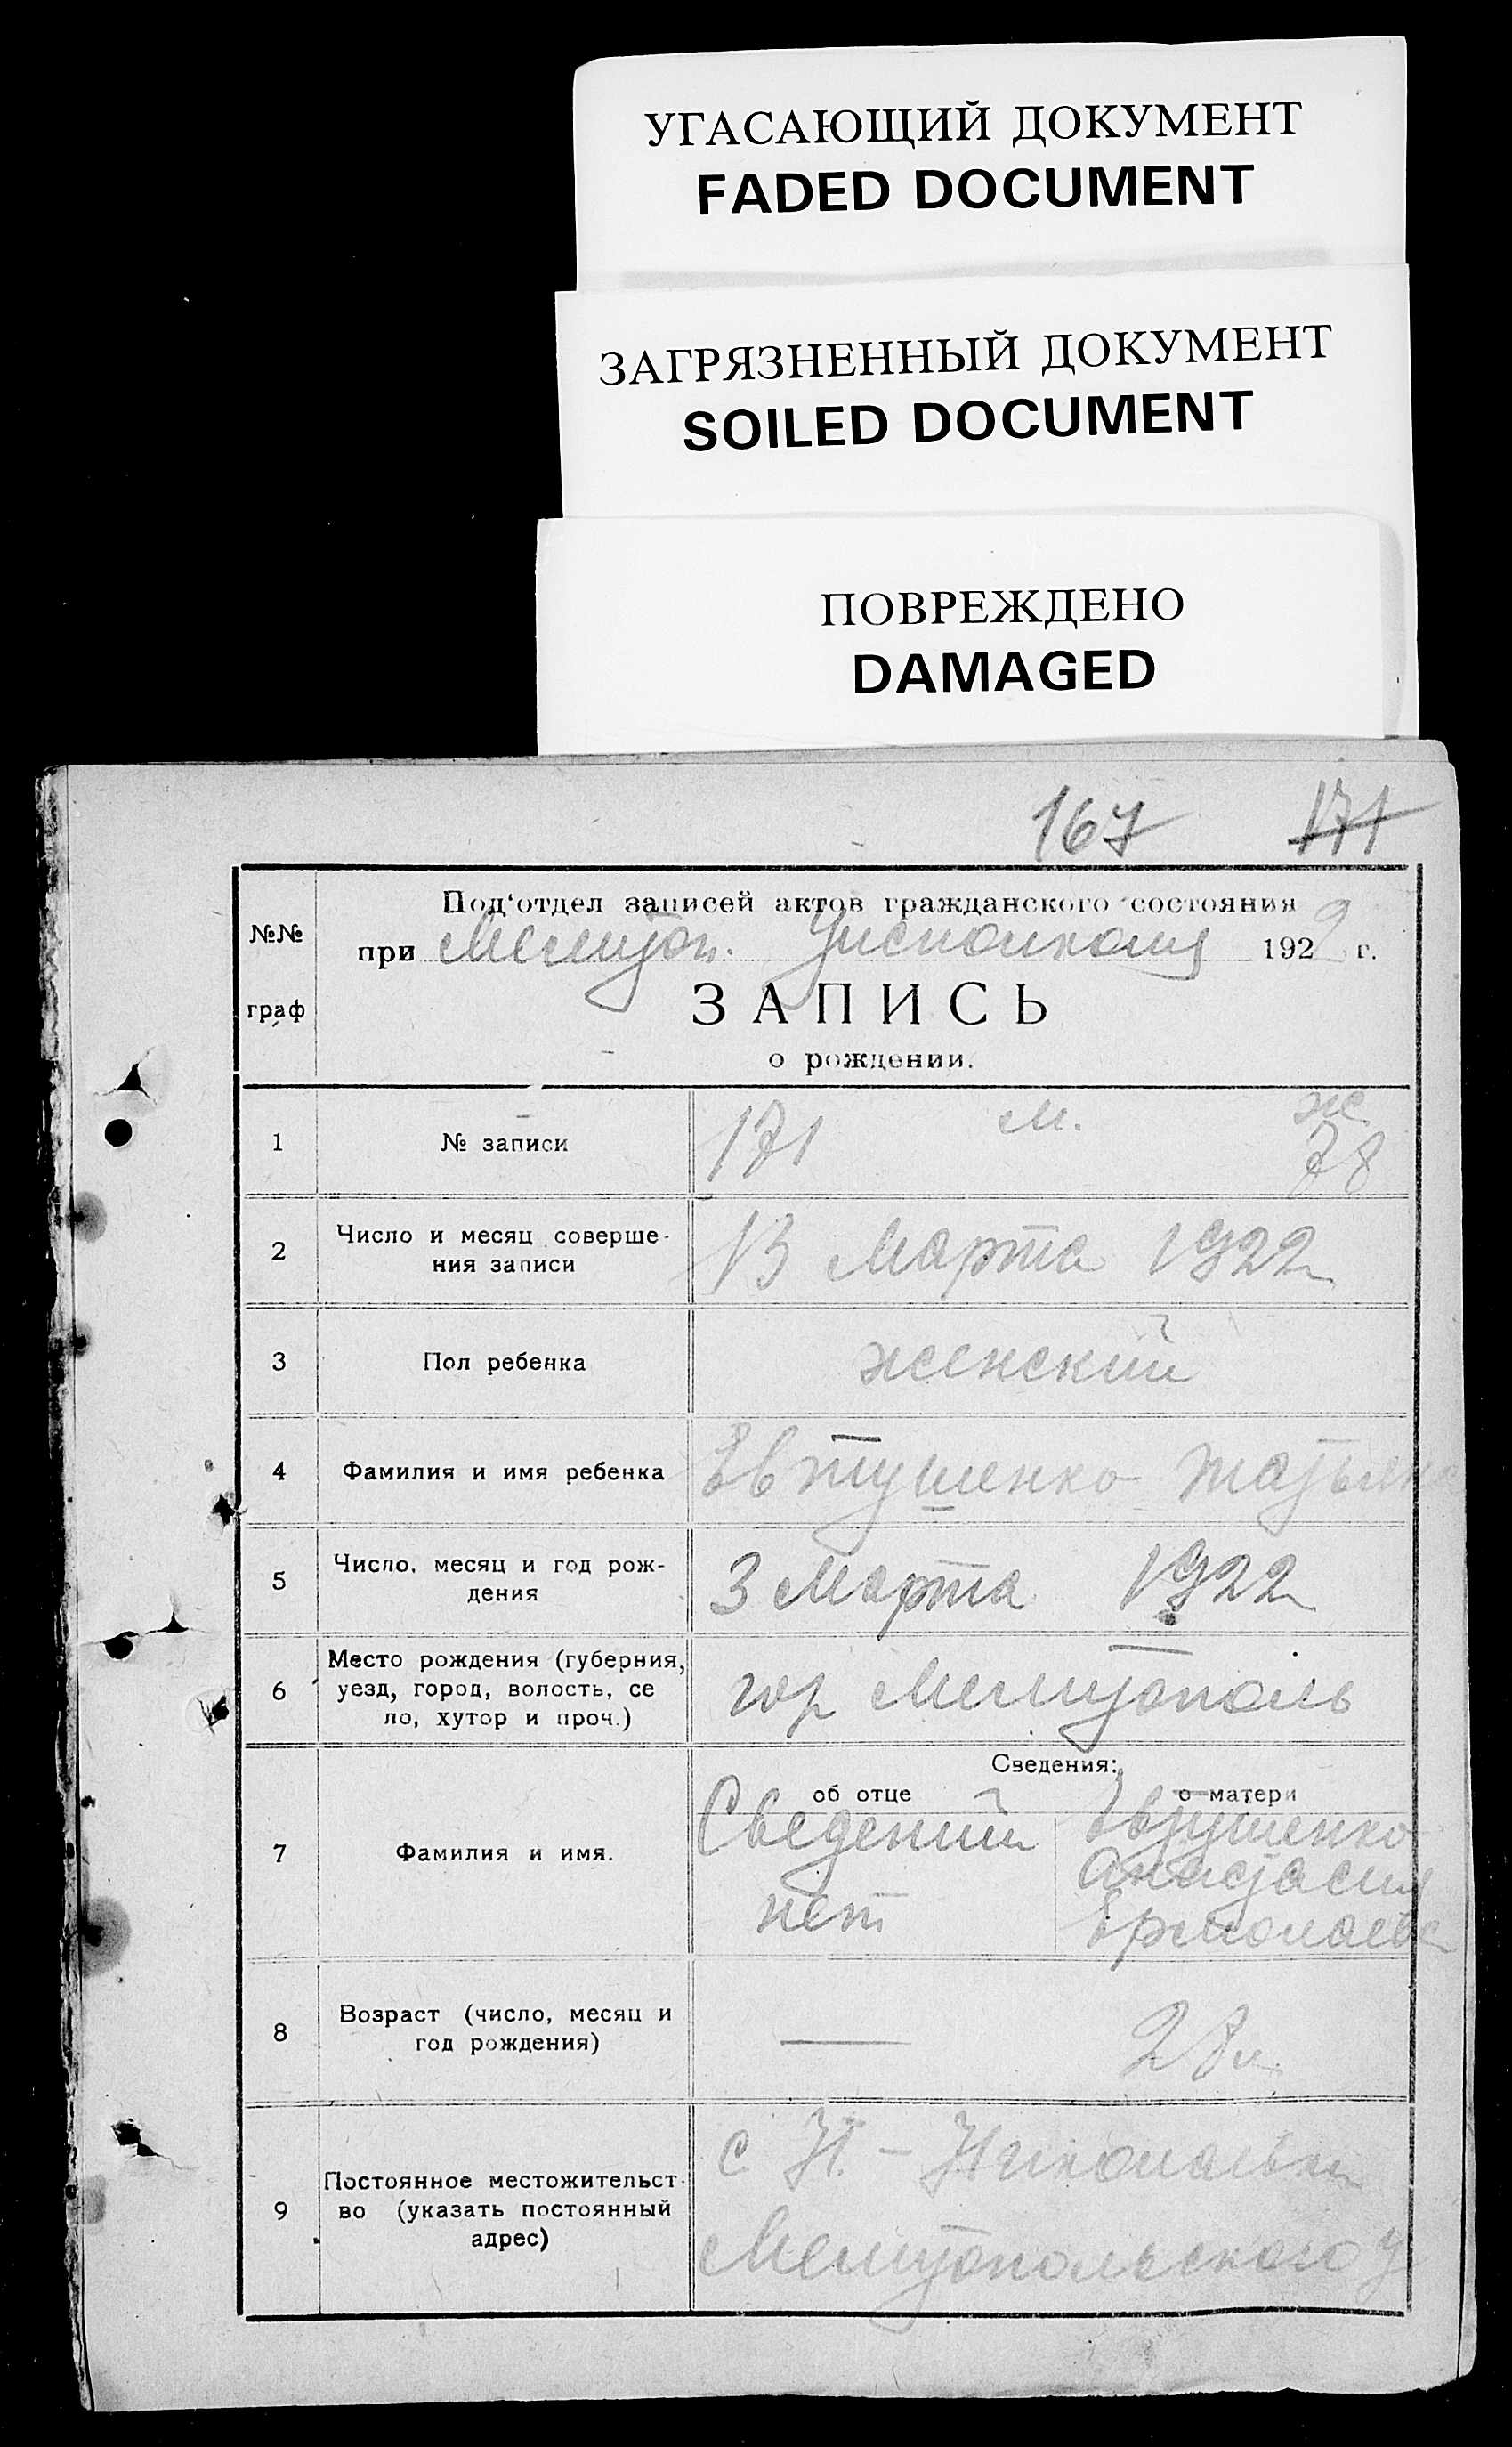 УГАСАЮЩИЙ ДОКУМЕНТ
FADED DOCUMENT
ЗАГРЯЗНЕННЫЙ ДОКУМЕНТ
SOILED DOCUMENT
ПОВРЕЖДЕНО
DAMAGED
167 171
№№ граф
Под‘отдел записей актов гражданского состояния
при Мелитоп. Уисполкома 1922 г.
ЗАПИСЬ
о рождении.
1 № записи 171 м. ж 78
2 Число и месяц соверше-
ния записи 13 Марта 1922
3 Пол ребенка женский
4 Фамилия и имя ребенка Евтушенко Татьяна
5 Число, месяц и год рож-
дения 3 Марта 1922
6 Место рождения (губерния,
уезд, город, волость, се
ло, хутор и проч.) гор Мелитополь
Сведения:
об отце о матери
7 Фамилия и имя. Сведений нет Евтушенко
Анастасия
Ермолаевна
8 Возраст (число, месяц и
год рождения) — 28 л.
9 Постоянное местожительст-
во (указать постоянный
адрес) с Н.-
Мелитопольского у